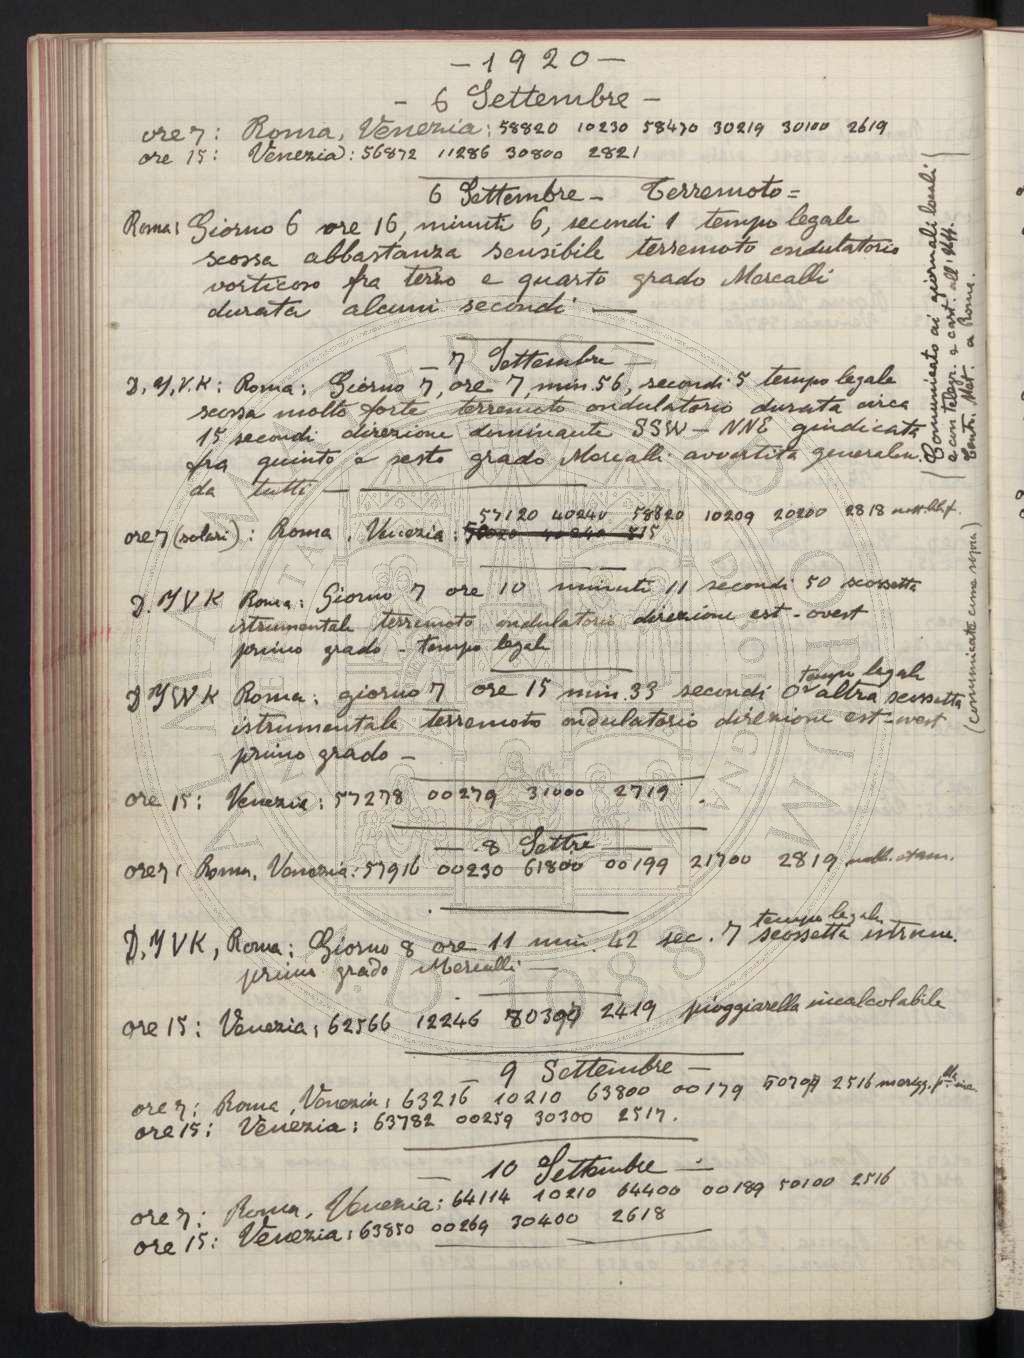 - 1920 -
- 6 Settembre -
ore 7: Roma, Venezia: 58820 10230 58470 30219 30100 2619
ore 15: Venezia: 56872 11286 30800 2821
6 Settembre - Terremoto =
Roma: Giorno 6 ore 16, minuti 6, secondi 1 tempo legale
scossa abbastanza sensibile terremoto ondulatorio
vorticoso fra terzo e quarto grado Mercalli
durata alcuni secondi —
- 7 Settembre -
D. Y. V. K: Roma: Giorno 7, ore 7, min. 56, secondi 5 tempo legale
scossa molto forte terremoto ondulatorio durata circa
15 secondi direzione dominante SSW - NNE giudicata
fra quinto e sesto grado Mercalli avvertita generalm.
da tutti —
57120 40240 58820 10209 20200 2818
ore 7 (solari): Roma, Venezia:
D. Y V K Roma: Giorno 7 ore 10 minuti 11 secondi 50 scossetta
istrumentale terremoto ondulatorio direzione est-ovest
primo grado - tempo legale
tempo legale
D Y V K Roma: giorno 7 ore 15 min. 33 secondi 0 altra scossetta
istrumentale terremoto ondulatorio direzione est-ovest
primo grado -
ore 15: Venezia: 57278 00279 31000 2719.
- 8 Settre -
ore 7: Roma, Venezia: 57916 00230 61800 00199 21700 2819
tempo legale
D. Y V K, Roma: Giorno 8 ore 11 min. 42 sec. 7 scossetta istrum.
primo grado Mercalli —
ore 15: Venezia: 62566 12246 2419 pioggiarella incalcolabile
- 9 Settembre -
ore 7: Roma, Venezia: 63216 10210 63800 00179 2516
ore 15: Venezia: 63782 00259 30300 2517.
- 10 Settembre -
ore 7: Roma, Venezia: 64114 10210 64400 00189 50100 2516
ore 15: Venezia: 63850 00269 30400 2618
(Comunicato ai giornali locali
e con telegr. e cart. all'Uff.
Centr. Met. a Roma.
(comunicate come sopra)
ALMA MATER STUDIORUM
A.D. 1088